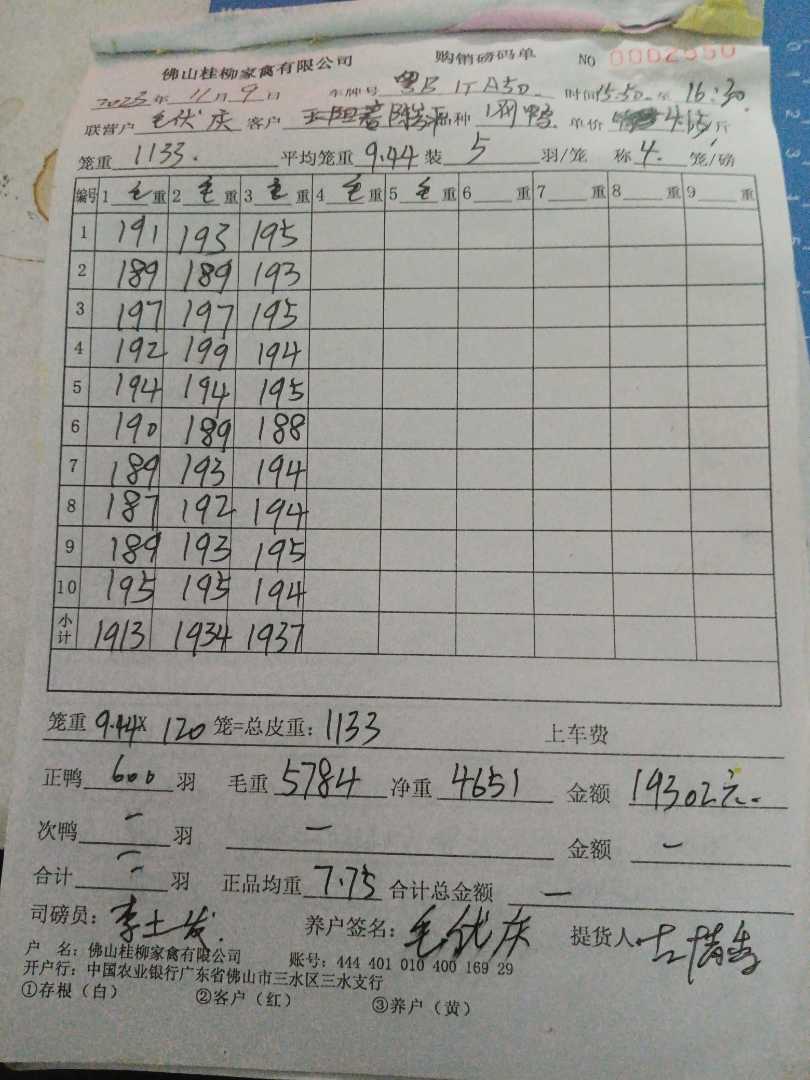 佛山桂柳家禽有限公司 购销磅码单 NO 0002550
2023年 11月 9日 车牌号 粤B 1TA50 时间 15:50 至 16:30
联营户 毛伏庆 客户 品种 鸭 单价 4.15/斤
笼重 1133. 平均笼重 9.44 装 5 羽/笼 称 4. 笼/磅
编号 1 毛 重 2 毛 重 3 毛 重 4 毛 重 5 毛 重 6 重 7 重 8 重 9 重
1 191 193 195
2 189 189 193
3 197 197 195
4 192 199 194
5 194 194 195
6 190 189 188
7 189 193 194
8 187 192 194
9 189 193 195
10 195 195 194
小计 1913 1934 1937
笼重 9.44 X 120 笼=总皮重: 1133 上车费
正鸭 600 羽 毛重 5784 净重 4651 金额 19302元.
次鸭 一 羽 一 金额 一
合计 一 羽 正品均重 7.75 合计总金额 一
司磅员: 李土发 养户签名: 毛伏庆 提货人
户 名: 佛山桂柳家禽有限公司 账号: 444 401 010 400 169 29
开户行: 中国农业银行广东省佛山市三水区三水支行
①存根（白） ②客户（红） ③养户（黄）